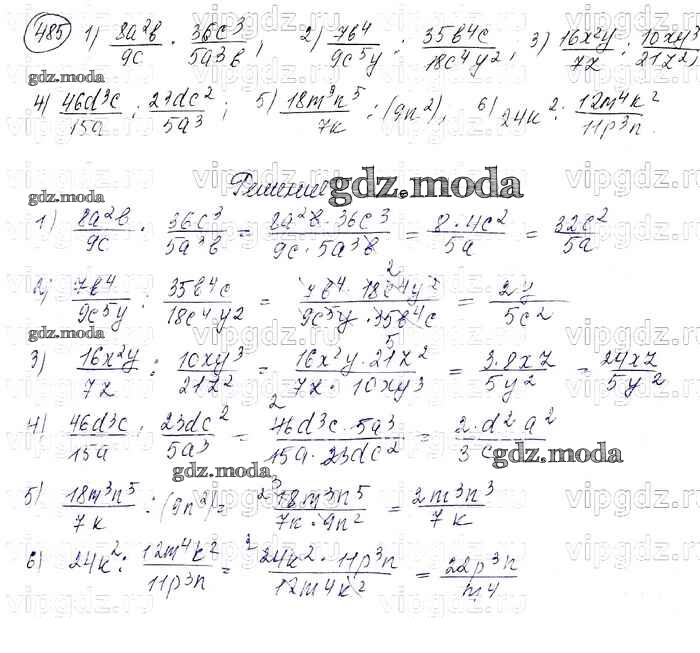 485 1) 8a²b/9c · 36c³/5a³b; 2) 7b⁴/9c⁵y : 35b⁴c/18c⁴y²; 3) 16x²y/7z : 10xy³/21z²;
gdz.moda
4) 46d³c/15a : 23dc²/5a³; 5) 18m³n⁵/7k : (9n²); 6) 24k² : 12m⁴k²/11p³n.
gdz.moda
Решение
gdz.moda
1) 8a²b/9c · 36c³/5a³b = 8a²b·36c³/9c·5a³b = 8·4c²/5a = 32c²/5a
2) 7b⁴/9c⁵y : 35b⁴c/18c⁴y² = 7b⁴·18c⁴y²/9c⁵y·35b⁴c = 2y/5c²
gdz.moda
3) 16x²y/7z : 10xy³/21z² = 16x²y·21z²/7z·10xy³ = 3·8xz/5y² = 24xz/5y²
4) 46d³c/15a : 23dc²/5a³ = 46d³c·5a³/15a·23dc² = 2·d²a²/3c
gdz.moda
gdz.moda
5) 18m³n⁵/7k : (9n²) = 18m³n⁵/7k·9n² = 2m³n³/7k
6) 24k² : 12m⁴k²/11p³n = 24k²·11p³n/12m⁴k² = 22p³n/m⁴